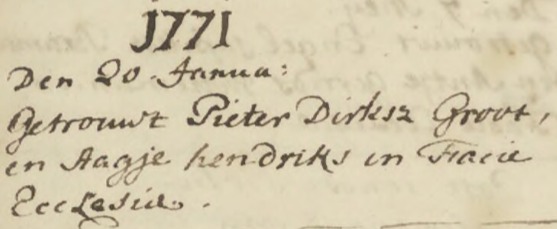 1771
Den 20. Janua:
Getrouwt Pieter Dirksz Groot,
en Aagje hendriks in Facie
Ecclesiæ.